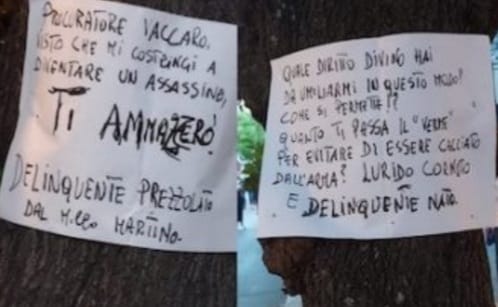 PROCURATORE VACCARO,
VISTO CHE MI COSTRINGI A
DIVENTARE UN ASSASSINO,
TI AMMAZZERÒ
DELINQUENTE PREZZOLATO
DAL M.LLO MARTINO.
QUALE DIRITTO DIVINO HAI
DA UMILIARMI IN QUESTO MODO?
COME SI PERMETTE!?
QUANTO TI PASSA IL "VERME"
PER EVITARE DI ESSERE CACCIATO
DALL'ARMA? LURIDO CORNUTO
E DELINQUENTE NATO.